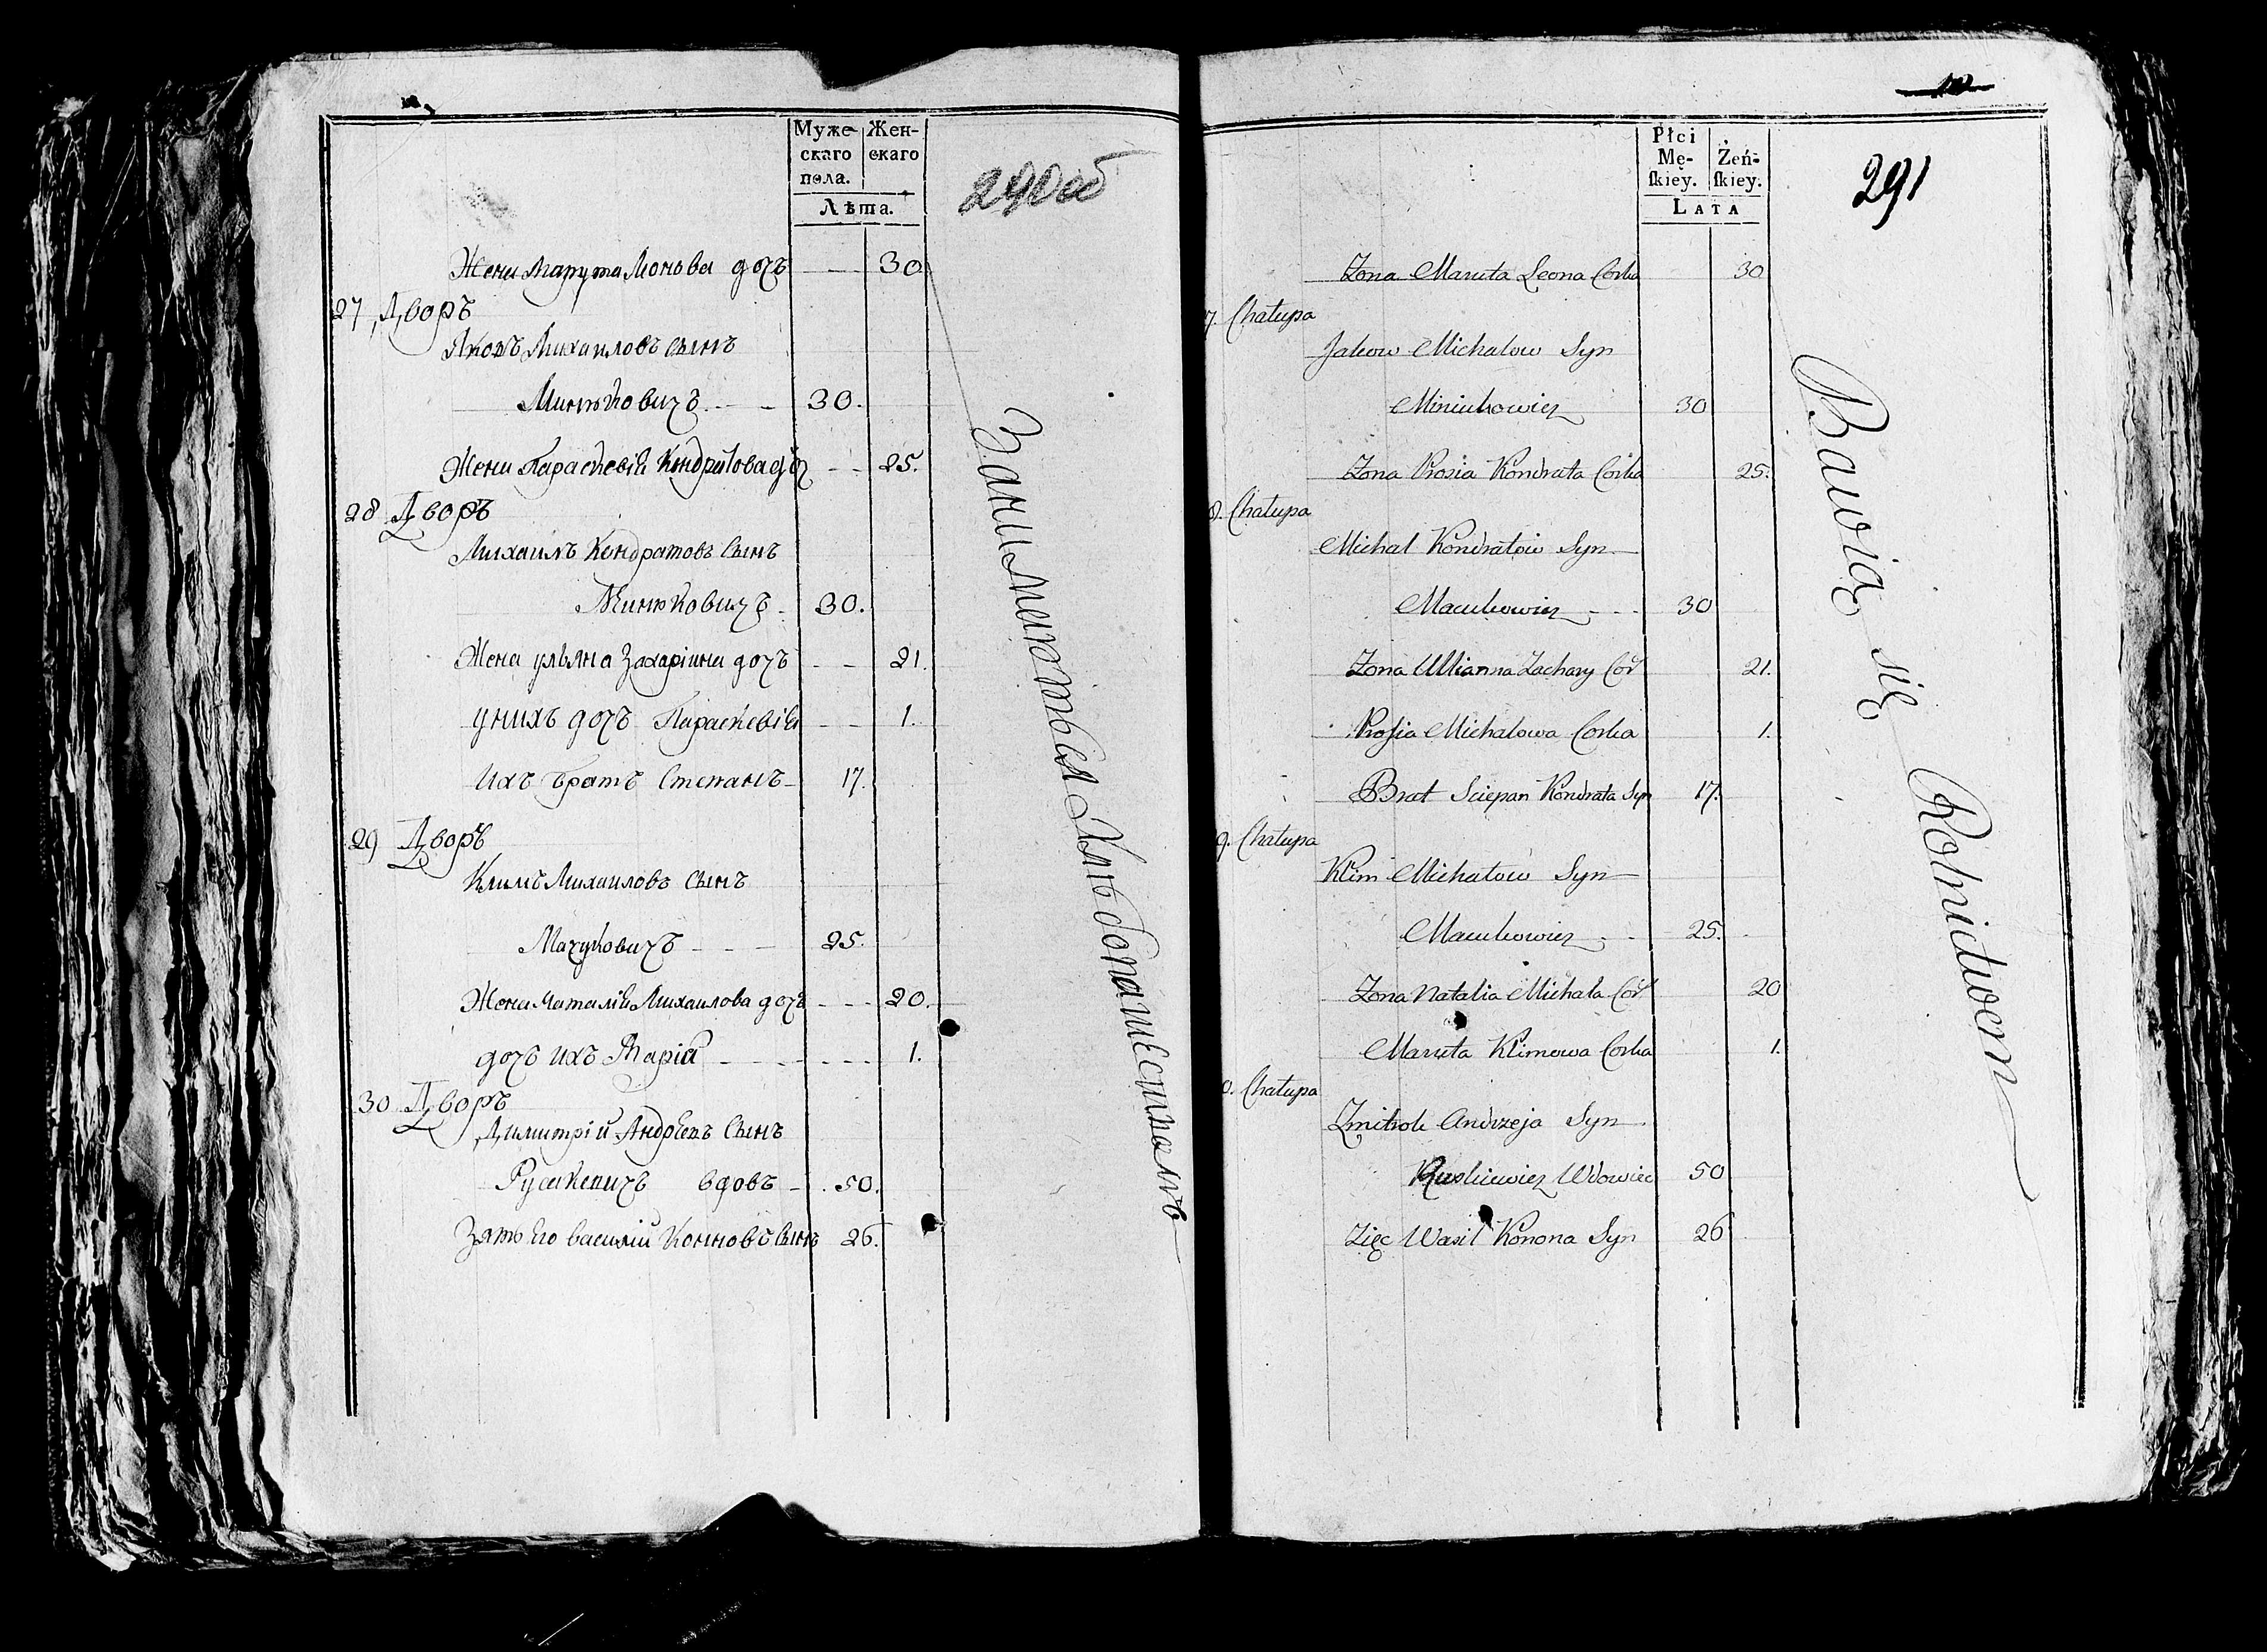 Муже-
скаго
пола.
Жен-
скаго
Лѣта.
290об
Жена Марута Леонова дочъ 30
27 Дворъ
Яковъ Михаиловъ сынъ
Минюковичъ 30.
Жена Параскевія Кондратова доч 25.
28 Дворъ
Михаилъ Кондратовъ сынъ
Минюковичъ 30.
Жена Ульяна Захаріина дочъ 21.
у нихъ дочъ Параскевія 1.
ихъ братъ Степанъ 17.
29 Дворъ
Климъ Михаиловъ сынъ
Мацуковичъ 25.
Жена Наталія Михаилова дочъ 20.
дочъ ихъ Марія 1.
30 Дворъ
Димитрій Андреевъ сынъ
вдовъ 50.
Зять Его василій Кононовъ сынъ 26.
Занимаются Хлебопашествомъ
10
Płci
Mę-
ſkiey.
Żeń-
ſkiey.
LATA
291
Zona Maruta Leona Corka 30
7. Chałupa
Jakow Michałow Syn
Miniukowicz 30
Zona Prosia Kondrata Corka 25.
8. Chałupa
Michał Kondratow Syn
Macukowicz 30
Zona Ullianna Zachary Cor 21.
Proſia Michałowa Corka 1.
Brat Sciepan Kondrata Syn 17.
9. Chałupa
Klim Michałow Syn
Macukowicz 25.
Zona Natalia Michała Cor 20
Maruta Klimowa Corka 1.
0. Chałupa
Zmitrok Andrzeja Syn
Ruskiewicz Wdowiec 50
Zięc Wasil Konona Syn 26
Bawią się Rolnictwem